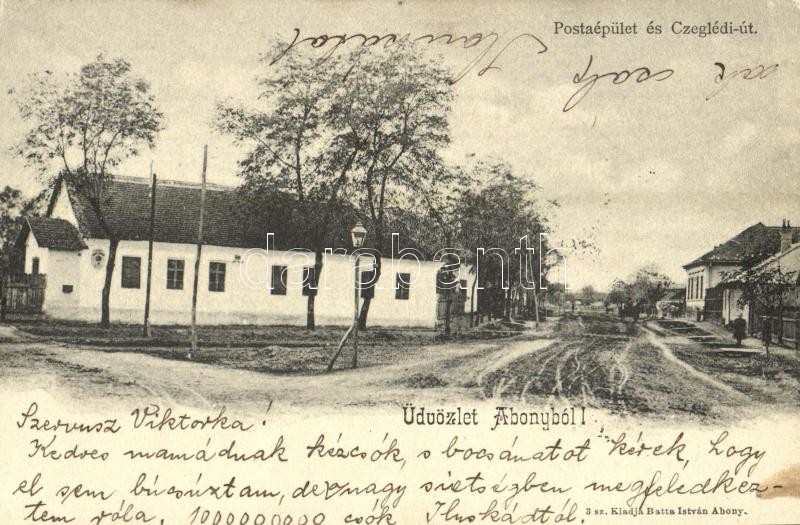 Postaépület és Czeglédi-út.
darabanth.com
Üdvözlet Abonyból!
Szervusz Viktorka!
Kedves mamádnak kézcsók, s bocsánatot kérek, hogy
el sem búcsúztam, de nagy sietségben megfeledkez-
tem róla. 1000000000 csók Iluskádtól.
3 sz. Kiadja Batta István Abony.